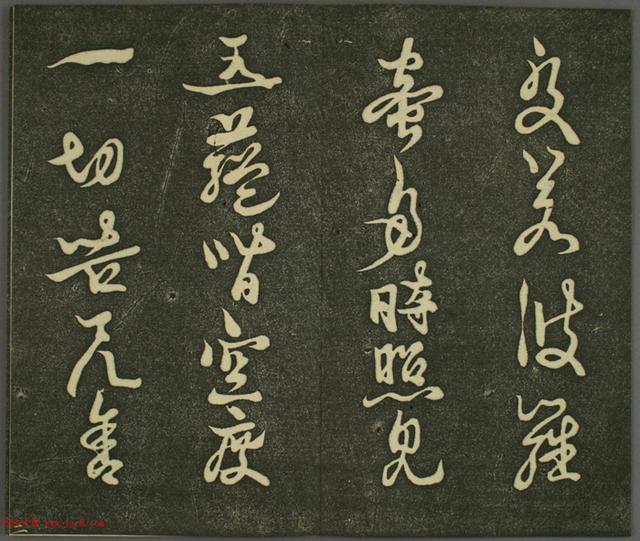 般若波羅
蜜多時照見
五蘊皆空度
一切苦厄舍